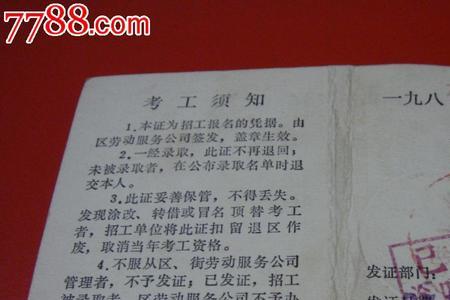 7788.com
考工须知
1.本证为招工报名的凭据。由
区劳动服务公司签发，盖章生效。
2.一经录取，此证不再退回；
未被录取者，在公布录取名单时退
交本人。
3.此证妥善保管，不得丢失。
发现涂改、转借或冒名顶替考工
者，招工单位将此证扣留退区作
废，取消当年考工资格。
4.不服从区、街劳动服务公司
管理者，不予发证；已发证，招工
被录取者，区劳动服务公司不予办
一九八
发证部门：